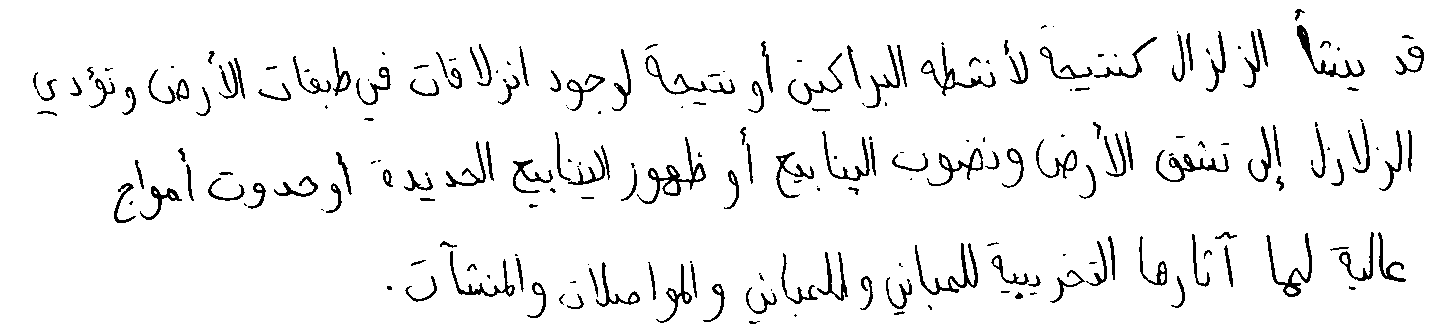 قد ينشأ الزلزال كنتيجة لأنشطه البراكين أو نتيجة لوجود انزلاقات في طبقات الأرض وتؤدي
الزلازل إلى تشقق الأرض ونضوب الينابيع أو ظهور الينابيع الجديدة أو حدوث أمواج
عالية لها آثارها التخريبية للمباني وللمباني والمواصلات والمنشآت.